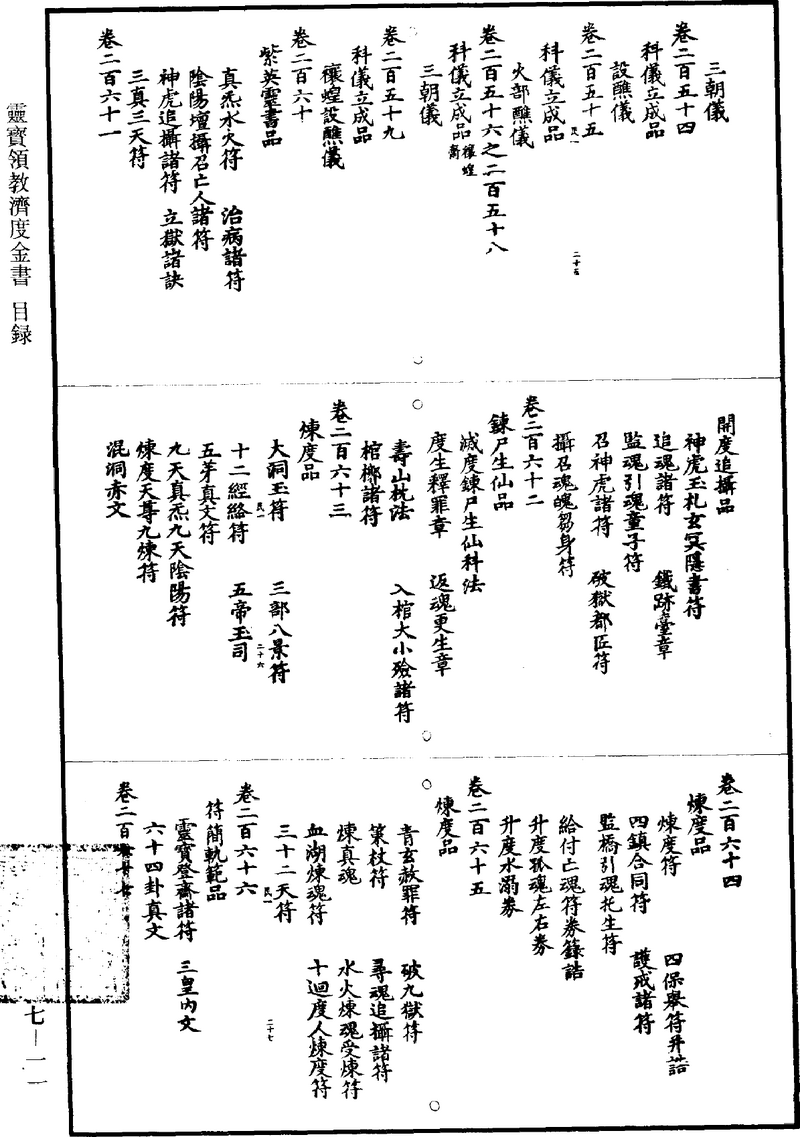 三朝儀
卷二百五十四
科儀立成品
設醮儀
卷二百五十五
科儀立成品
火部醮儀
卷二百五十六之二百五十八
科儀立成品禳蝗齋
三朝儀
卷二百五十九
科儀立成品
禳蝗設醮儀
卷二百六十
紫英靈書品
真炁水火符 治病諸符
陰陽壇攝召亡人諸符
神虎追攝諸符 立獄諸訣
三真三天符
卷二百六十一
開度追攝品
神虎玉札玄冥隱書符
追魂諸符 鐵跡臺章
監魂引魂童子符
召神虎諸符 破獄都匠符
攝召魂魄芻身符
卷二百六十二
鍊尸生仙品
滅度鍊尸生仙科法
度生釋罪章 返魂更生章
壽山枕法 入棺大小殮諸符
棺槨諸符
卷二百六十三
煉度品
大洞玉符 三部八景符
十二經絡符 五帝玉司
五芽真文符
九天真炁九天陰陽符
煉度天尊九煉符
混洞赤文
卷二百六十四
煉度品
煉度符 四保舉符并誥
四鎮合同符 護戒諸符
監橋引魂托生符
給付亡魂符券籙誥
升度孤魂左右券
升度水溺券
卷二百六十五
煉度品
青玄赦罪符 破九獄符
策杖符 尋魂追攝諸符
煉真魂 水火煉魂受煉符
血湖煉魂符 十迴度人煉度符
三十二天符
卷二百六十六
符簡軌範品
靈寶登齋諸符 三皇內文
六十四卦真文
卷二百六十七
靈寶領教濟度金書 目録
七—一一